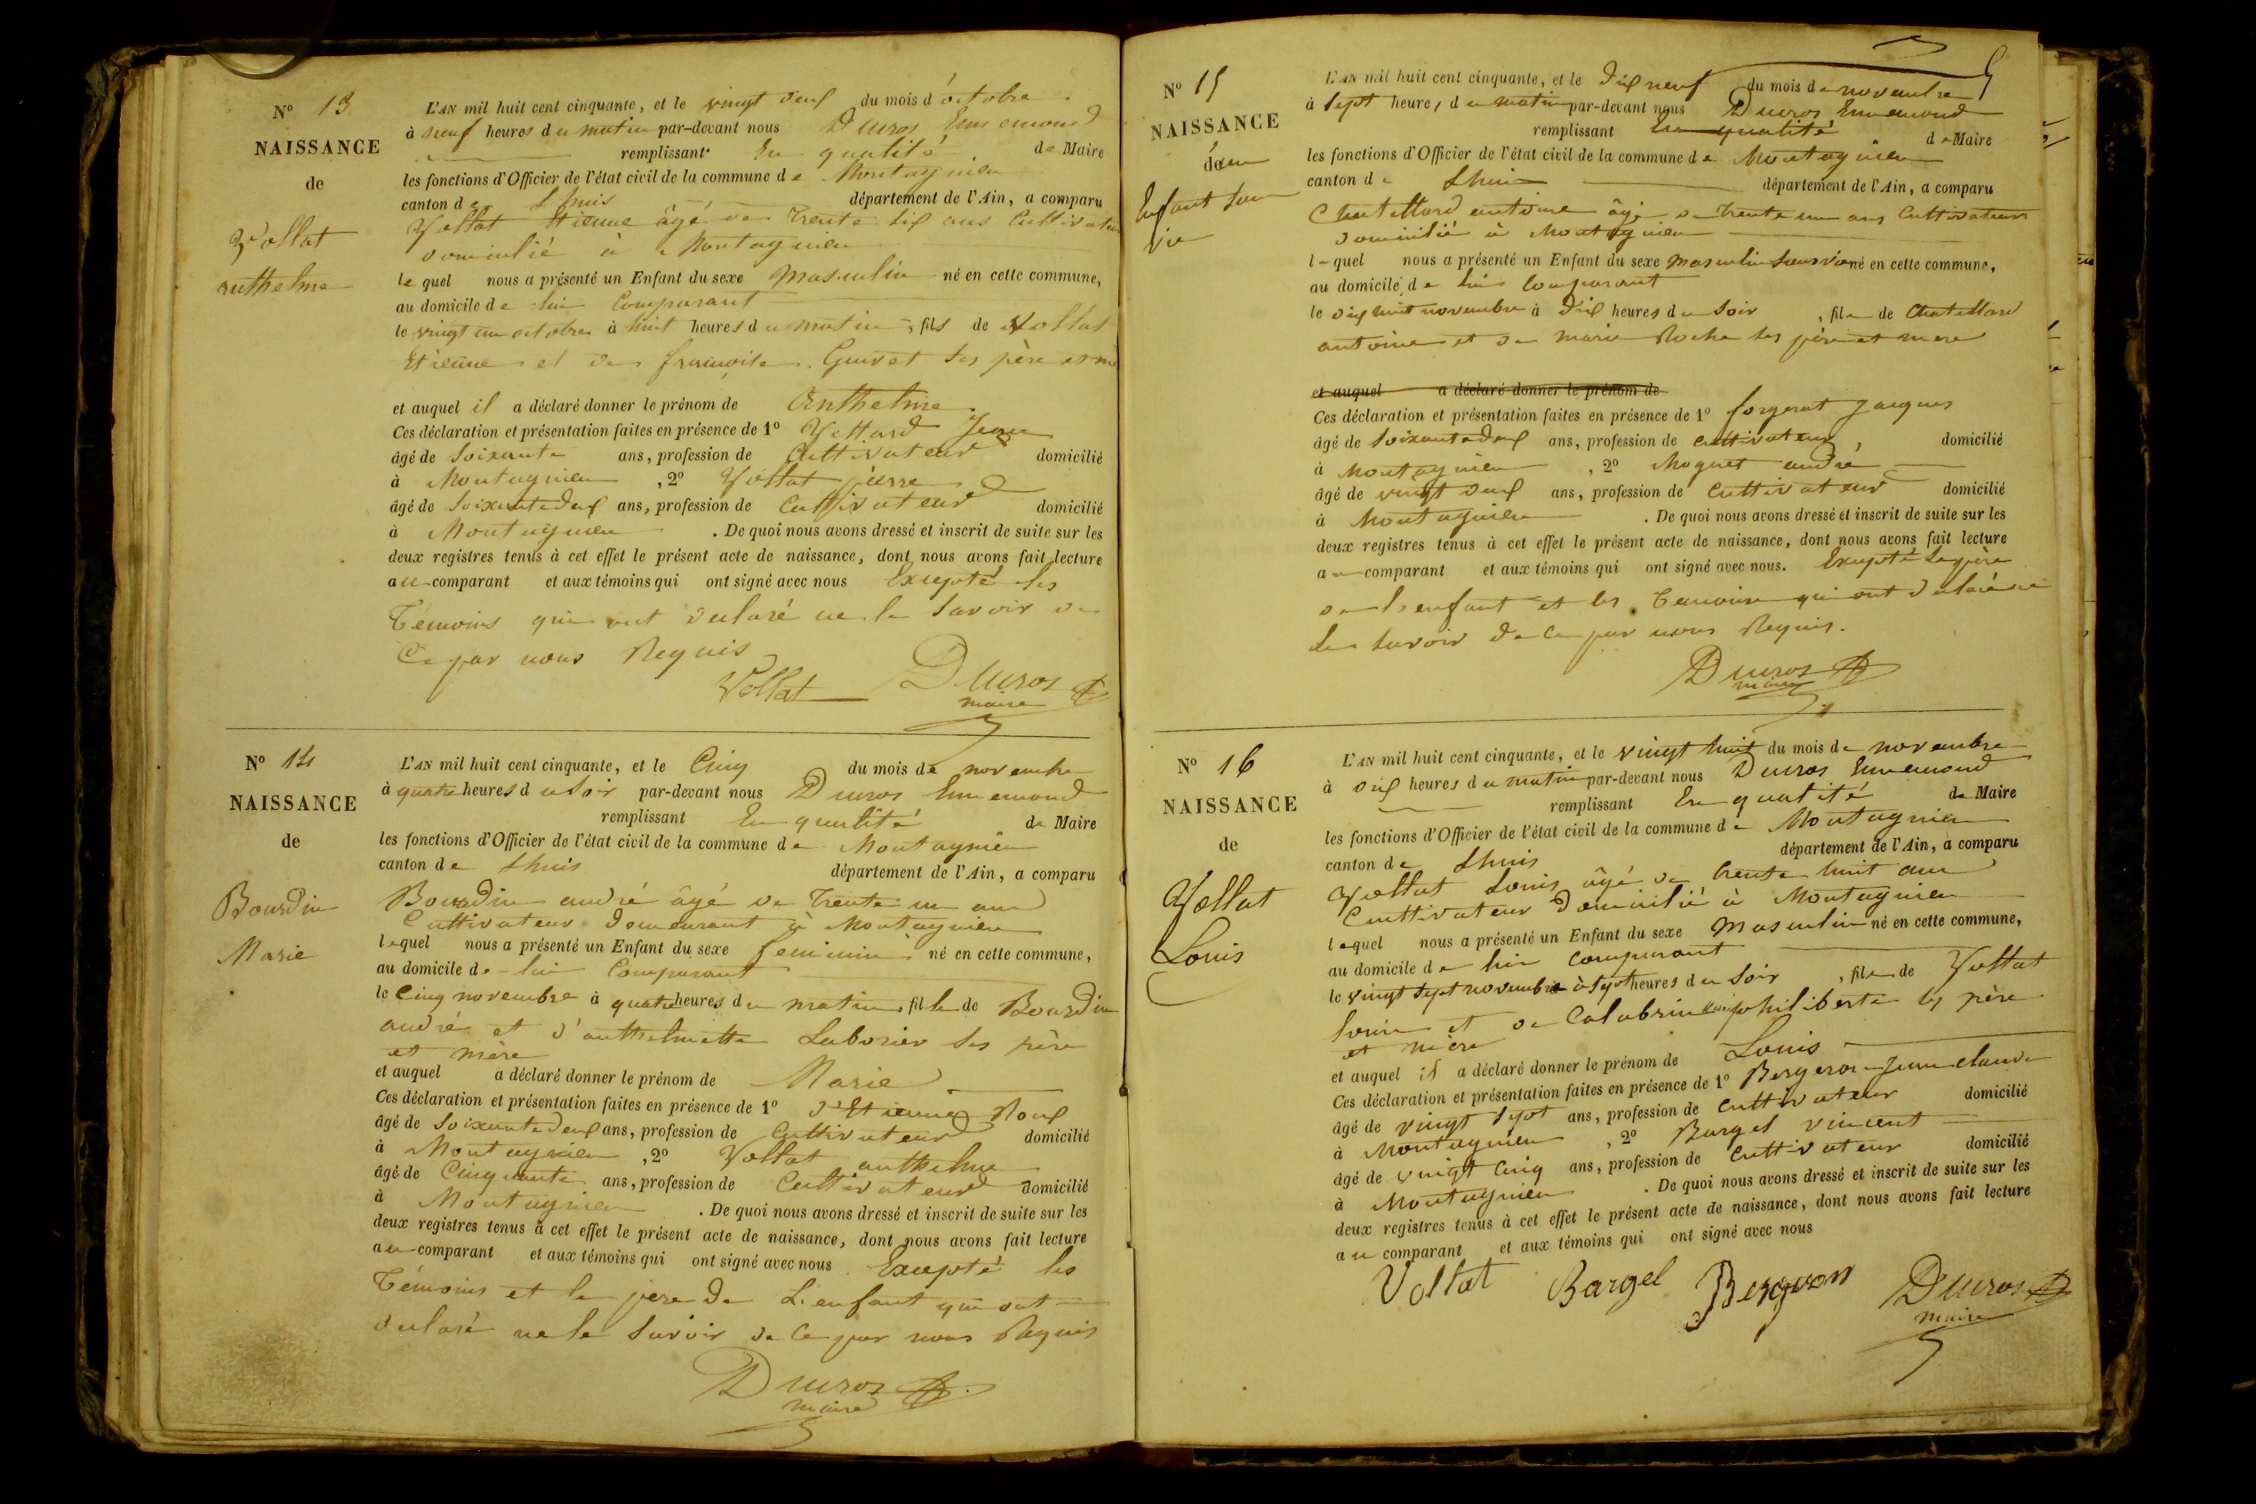 N° 13
NAISSANCE
de
Vollat
anthelme
L'AN mil huit cent cinquante, et le vingt deux du mois d'octobre
à neuf heures du matin par-devant nous Ducros Ennemond
remplissant En qualité de Maire
les fonctions d'Officier de l'état civil de la commune de Montagnieu
canton de Lhuis département de l'Ain, a comparu
Vollat Etienne âgé de trente six ans Cultivateur
domicilié à Montagnieu
lequel nous a présenté un Enfant du sexe masculin né en cette commune,
au domicile de lui Comparant
le vingt un octobre à huit heures du matin, fils de Vollat
Etienne et de françoise Guivet ses père et mè
et auquel il a déclaré donner le prénom de Anthelme
Ces déclaration et présentation faites en présence de 1° Vettard Jean
âgé de Soixante ans, profession de Cultivateur domicilié
à Montagnieu, 2° Vollat pierre
âgé de Soixante deux ans, profession de Cultivateur domicilié
à Montagnieu. De quoi nous avons dressé et inscrit de suite sur les
deux registres tenus à cet effet le présent acte de naissance, dont nous avons fait lecture
au comparant et aux témoins qui ont signé avec nous Excepté les
Témoins qui ont declaré ne le savoir de
Ce par nous Requis
Vollat Ducros
maire
N° 14
NAISSANCE
de
Bourdin
Marie
L'AN mil huit cent cinquante, et le Cinq du mois de novembre
à quatre heures du Soir par-devant nous Ducros Ennemond
remplissant En qualité de Maire
les fonctions d'Officier de l'état civil de la commune de Montagnieu
canton de Lhuis département de l'Ain, a comparu
Bourdin andré âgé de Trente un ans
Cultivateur demeurant à Montagnieu
lequel nous a présenté un Enfant du sexe feminin né en cette commune,
au domicile de lui Comparant
le Cinq novembre à quatre heures du matin, fille de Bourdin
andré et d'anthelmette Laborier ses père
et mère
et auquel a déclaré donner le prénom de Marie
Ces déclaration et présentation faites en présence de 1° d'Etienne Roux
âgé de Soixante deux ans, profession de Cultivateur domicilié
à Montagnieu, 2° Vollat anthelme
âgé de Cinquante ans, profession de Cultivateur domicilié
à Montagnieu. De quoi nous avons dressé et inscrit de suite sur les
deux registres tenus à cet effet le présent acte de naissance, dont nous avons fait lecture
au comparant et aux témoins qui ont signé avec nous Excepté les
Témoins et le père de L'enfant qui ont
declaré ne le savoir de Ce par nous Requis
Ducros
maire
N° 15
NAISSANCE
d'un
Enfant sans
vie
L'AN mil huit cent cinquante, et le dix neuf du mois de novembre
à sept heures du matin par-devant nous Ducros Ennemond
remplissant En qualité de Maire
les fonctions d'Officier de l'état civil de la commune de Montagnieu
canton de Lhuis département de l'Ain, a comparu
Chatellard antoine âgé de trente un ans Cultivateur
domicilié à Montagnieu
lequel nous a présenté un Enfant du sexe masculin sans vie né en cette commune,
au domicile de lui comparant
le dix huit novembre à dix heures du soir, fils de Chatellard
antoine et de marie Roche ses père et mere
et auquel a déclaré donner le prénom de
Ces déclaration et présentation faites en présence de 1° forgerat Jacques
âgé de soixante deux ans, profession de cultivateur, domicilié
à Montagnieu, 2° Moquet andré
âgé de vingt deux ans, profession de Cultivateur domicilié
à Montagnieu. De quoi nous avons dressé et inscrit de suite sur les
deux registres tenus à cet effet le présent acte de naissance, dont nous avons fait lecture
au comparant et aux témoins qui ont signé avec nous. Excepté le père
de l'enfant et les Temoins qui ont declaré ne
le savoir de Ce par nous Requis.
Ducros
maire
N° 16
NAISSANCE
de
Vollat
Louis
L'AN mil huit cent cinquante, et le vingt huit du mois de novembre
à dix heures du matin par-devant nous Ducros Ennemond
remplissant En qualité de Maire
les fonctions d'Officier de l'état civil de la commune de Montagnieu
canton de Lhuis département de l'Ain, a comparu
Vollat Louis âgé de trente huit ans
Cultivateur Domicilié à Montagnieu
lequel nous a présenté un Enfant du sexe masculin né en cette commune,
au domicile de lui comparant
le vingt sept novembre à sept heures du soir, fils de Vollat
Louis et de Calabrin philiberte ses père
et mère
et auquel il a déclaré donner le prénom de Louis
Ces déclaration et présentation faites en présence de 1° Bergeron Jean claude
âgé de vingt sept ans, profession de cultivateur domicilié
à Montagnieu, 2° Bargel vincent
âgé de vingt cinq ans, profession de cultivateur domicilié
à Montagnieu. De quoi nous avons dressé et inscrit de suite sur les
deux registres tenus à cet effet le présent acte de naissance, dont nous avons fait lecture
au comparant et aux témoins qui ont signé avec nous
Vollat Bargel Bergeron Ducros
maire